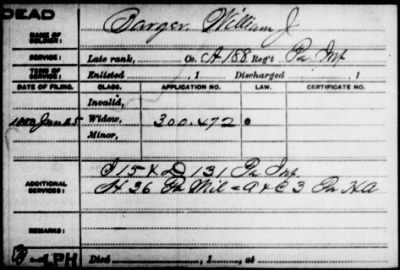 DEAD
NAME OF SOLDIER: Barger, William J.
SERVICE: Late rank, Co. A 188 Reg't Pa Inf
TERM OF SERVICE: Enlisted , 1 Discharged , 1
DATE OF FILING. CLASS. APPLICATION NO. LAW. CERTIFICATE NO.
Invalid,
June 25 Widow, 300.472
Minor,
ADDITIONAL SERVICES: I 15 & D 131 Pa Inf.
H 36 Pa Mil = A & C 3 Pa H A
REMARKS:
LPH Died , 1 , at